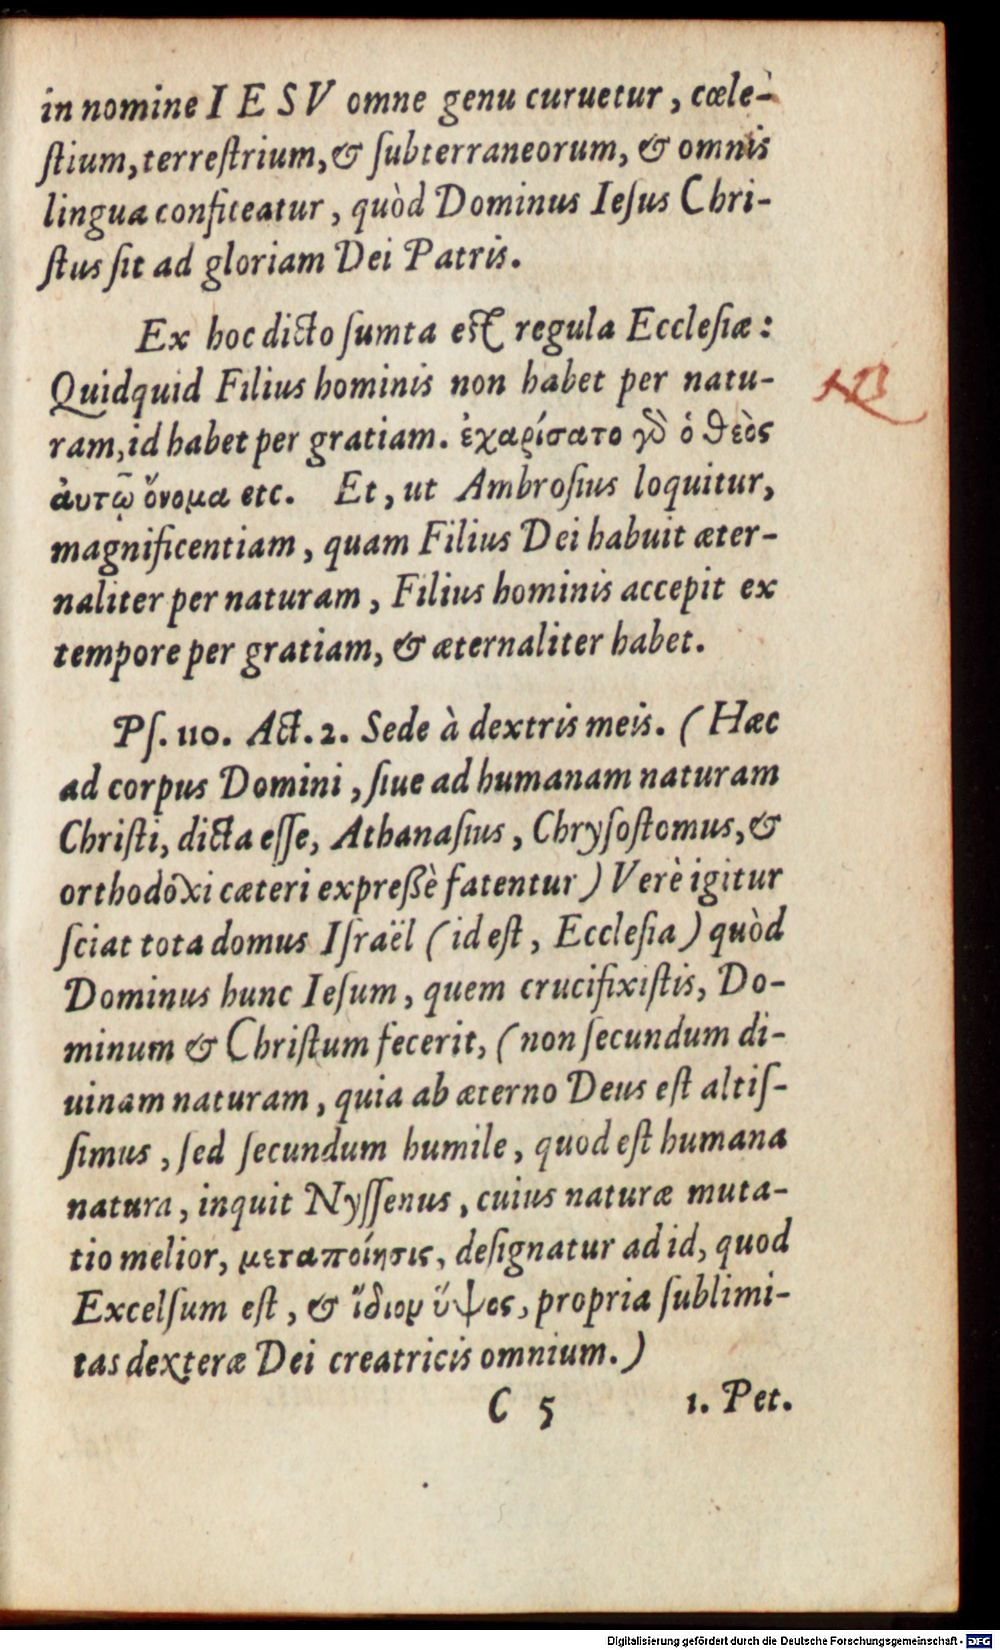 in nomine I E S V omne genu curuetur, cœle-
ſtium, terreſtrium, & ſubterraneorum, & omnis
lingua confiteatur, quòd Dominus Ieſus Chri-
ſtus ſit ad gloriam Dei Patris.
Ex hoc dicto ſumta eſt regula Eccleſiæ:
Quidquid Filius hominis non habet per natu-
ram, id habet per gratiam. ἐχαρίσατο γὸ ὁ θεὸς
ἀυτῷ ὄνομα etc. Et, ut Ambroſius loquitur,
magnificentiam, quam Filius Dei habuit æter-
naliter per naturam, Filius hominis accepit ex
tempore per gratiam, & æternaliter habet.
Pſ. 110. Act. 2. Sede à dextris meis. (Hæc
ad corpus Domini, ſiue ad humanam naturam
Chriſti, dicta eſſe, Athanaſius, Chryſoſtomus, &
orthodoxi cæteri expreßè fatentur) Verè igitur
ſciat tota domus Iſraël (id eſt, Eccleſia) quòd
Dominus hunc Ieſum, quem crucifixiſtis, Do-
minum & Chriſtum fecerit, (non ſecundum di-
uinam naturam, quia ab æterno Deus eſt altiſ-
ſimus, ſed ſecundum humile, quod eſt humana
natura, inquit Nyſſenus, cuius naturæ muta-
tio melior, μεταποίησις, deſignatur ad id, quod
Excelſum eſt, & ἴδιον ὕψος, propria ſublimi-
tas dexteræ Dei creatricis omnium.)
C 5 1. Pet.
Digitalisierung gefördert durch die Deutsche Forschungsgemeinschaft - DFG